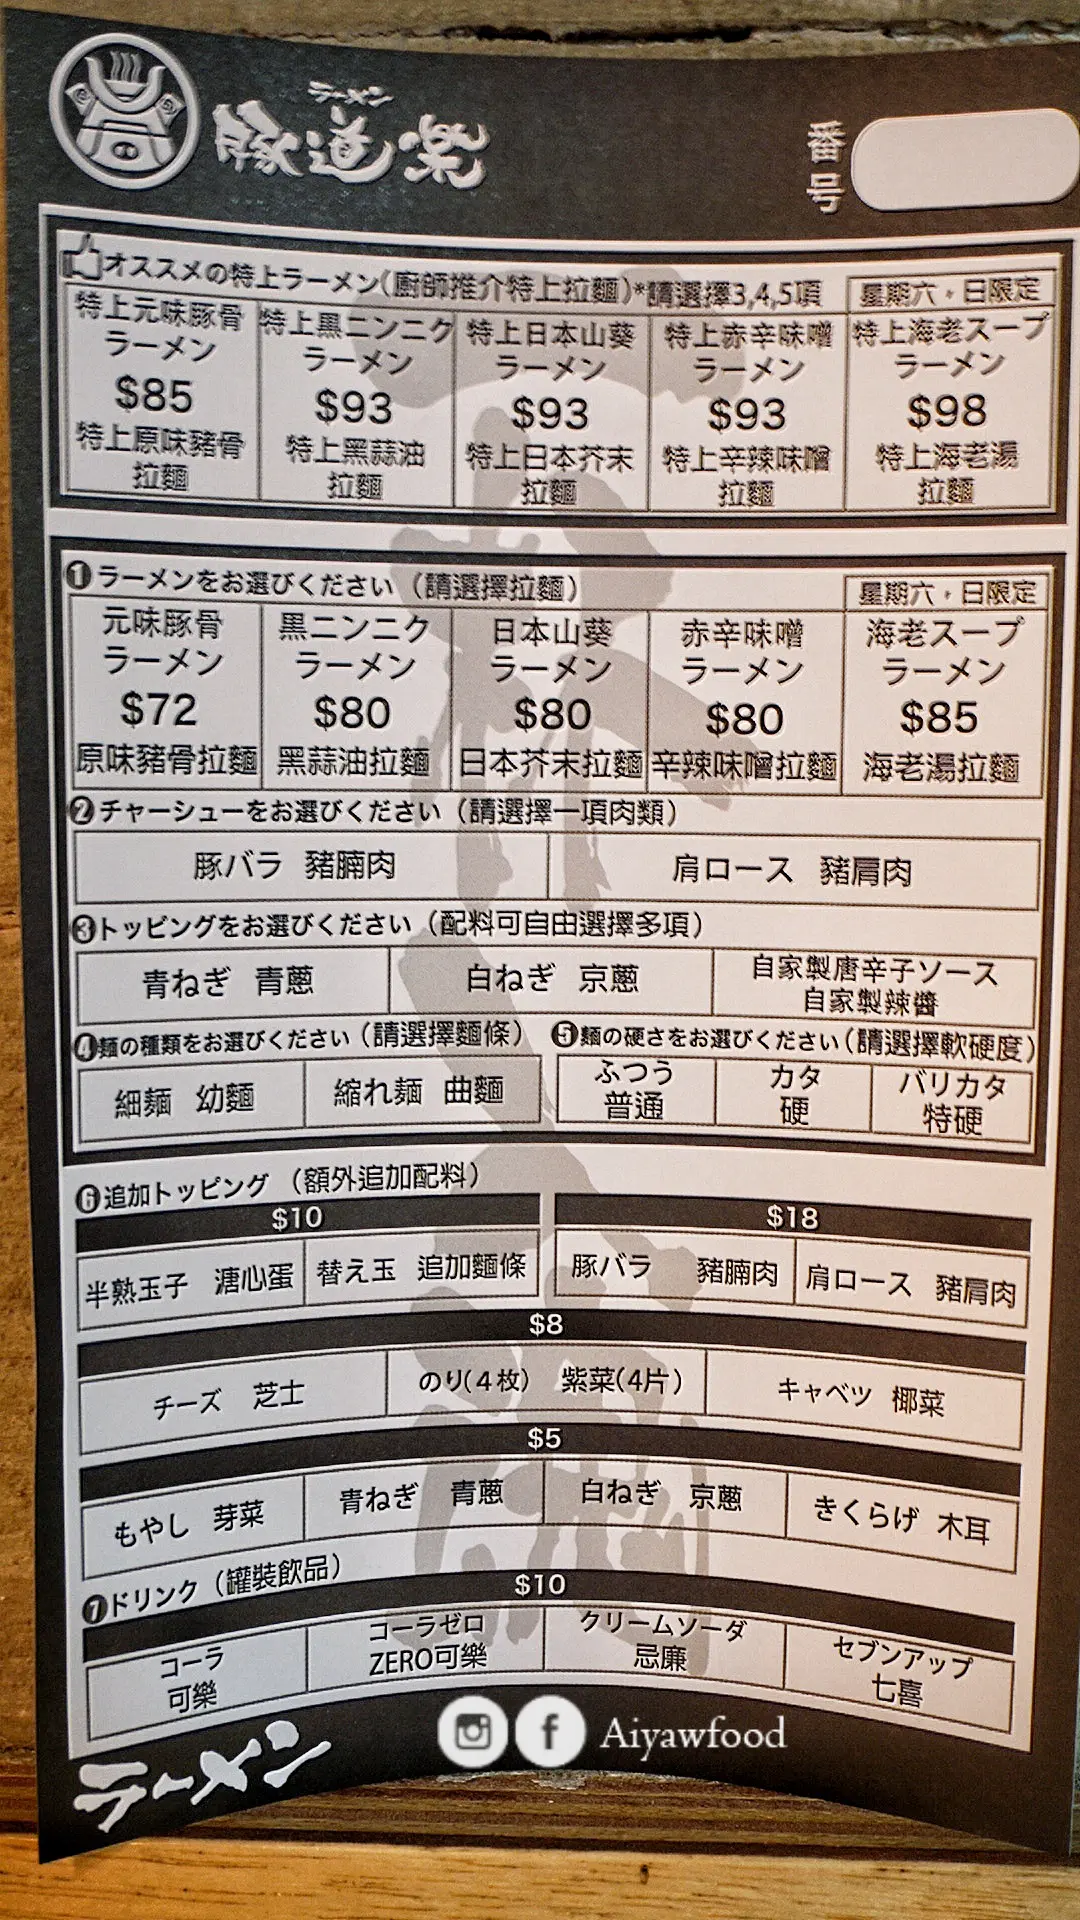 ラーメン
豚道楽
番号
オススメの特上ラーメン(廚師推介特上拉麵)*請選擇3,4,5項
星期六・日限定
特上元味豚骨
ラーメン
$85
特上原味豬骨
拉麵
特上黒ニンニク
ラーメン
$93
特上黑蒜油
拉麵
特上日本山葵
ラーメン
$93
特上日本芥末
拉麵
特上赤辛味噌
ラーメン
$93
特上辛辣味噌
拉麵
特上海老スープ
ラーメン
$98
特上海老湯
拉麵
❶ラーメンをお選びください（請選擇拉麵）
星期六・日限定
元味豚骨
ラーメン
$72
原味豬骨拉麵
黒ニンニク
ラーメン
$80
黑蒜油拉麵
日本山葵
ラーメン
$80
日本芥末拉麵
赤辛味噌
ラーメン
$80
辛辣味噌拉麵
海老スープ
ラーメン
$85
海老湯拉麵
❷チャーシューをお選びください（請選擇一項肉類）
豚バラ 豬腩肉
肩ロース 豬肩肉
❸トッピングをお選びください（配料可自由選擇多項）
青ねぎ 青蔥
白ねぎ 京蔥
自家製唐辛子ソース
自家製辣醬
❹麺の種類をお選びください（請選擇麵條）
細麺 幼麵
縮れ麺 曲麵
❺麺の硬さをお選びください（請選擇軟硬度）
ふつう
普通
カタ
硬
バリカタ
特硬
❻追加トッピング（額外追加配料）
$10
半熟玉子 溏心蛋
替え玉 追加麵條
$18
豚バラ 豬腩肉
肩ロース 豬肩肉
$8
チーズ 芝士
のり(4枚) 紫菜(4片)
キャベツ 椰菜
$5
もやし 芽菜
青ねぎ 青蔥
白ねぎ 京蔥
きくらげ 木耳
❼ドリンク（罐裝飲品）
$10
コーラ
可樂
コーラゼロ
ZERO可樂
クリームソーダ
忌廉
セブンアップ
七喜
ラーメン
Aiyawfood